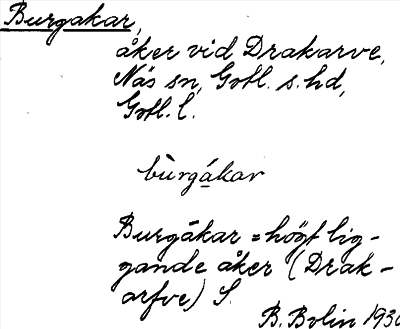 Burgakar,
åker vid Drakarve,
Näs sn, Gotl. s. hd,
Gotl. l.
bùrgákar
Burgåkar = högt lig-
gande åker (Drak-
arfve) S.
B. Bolin 1930